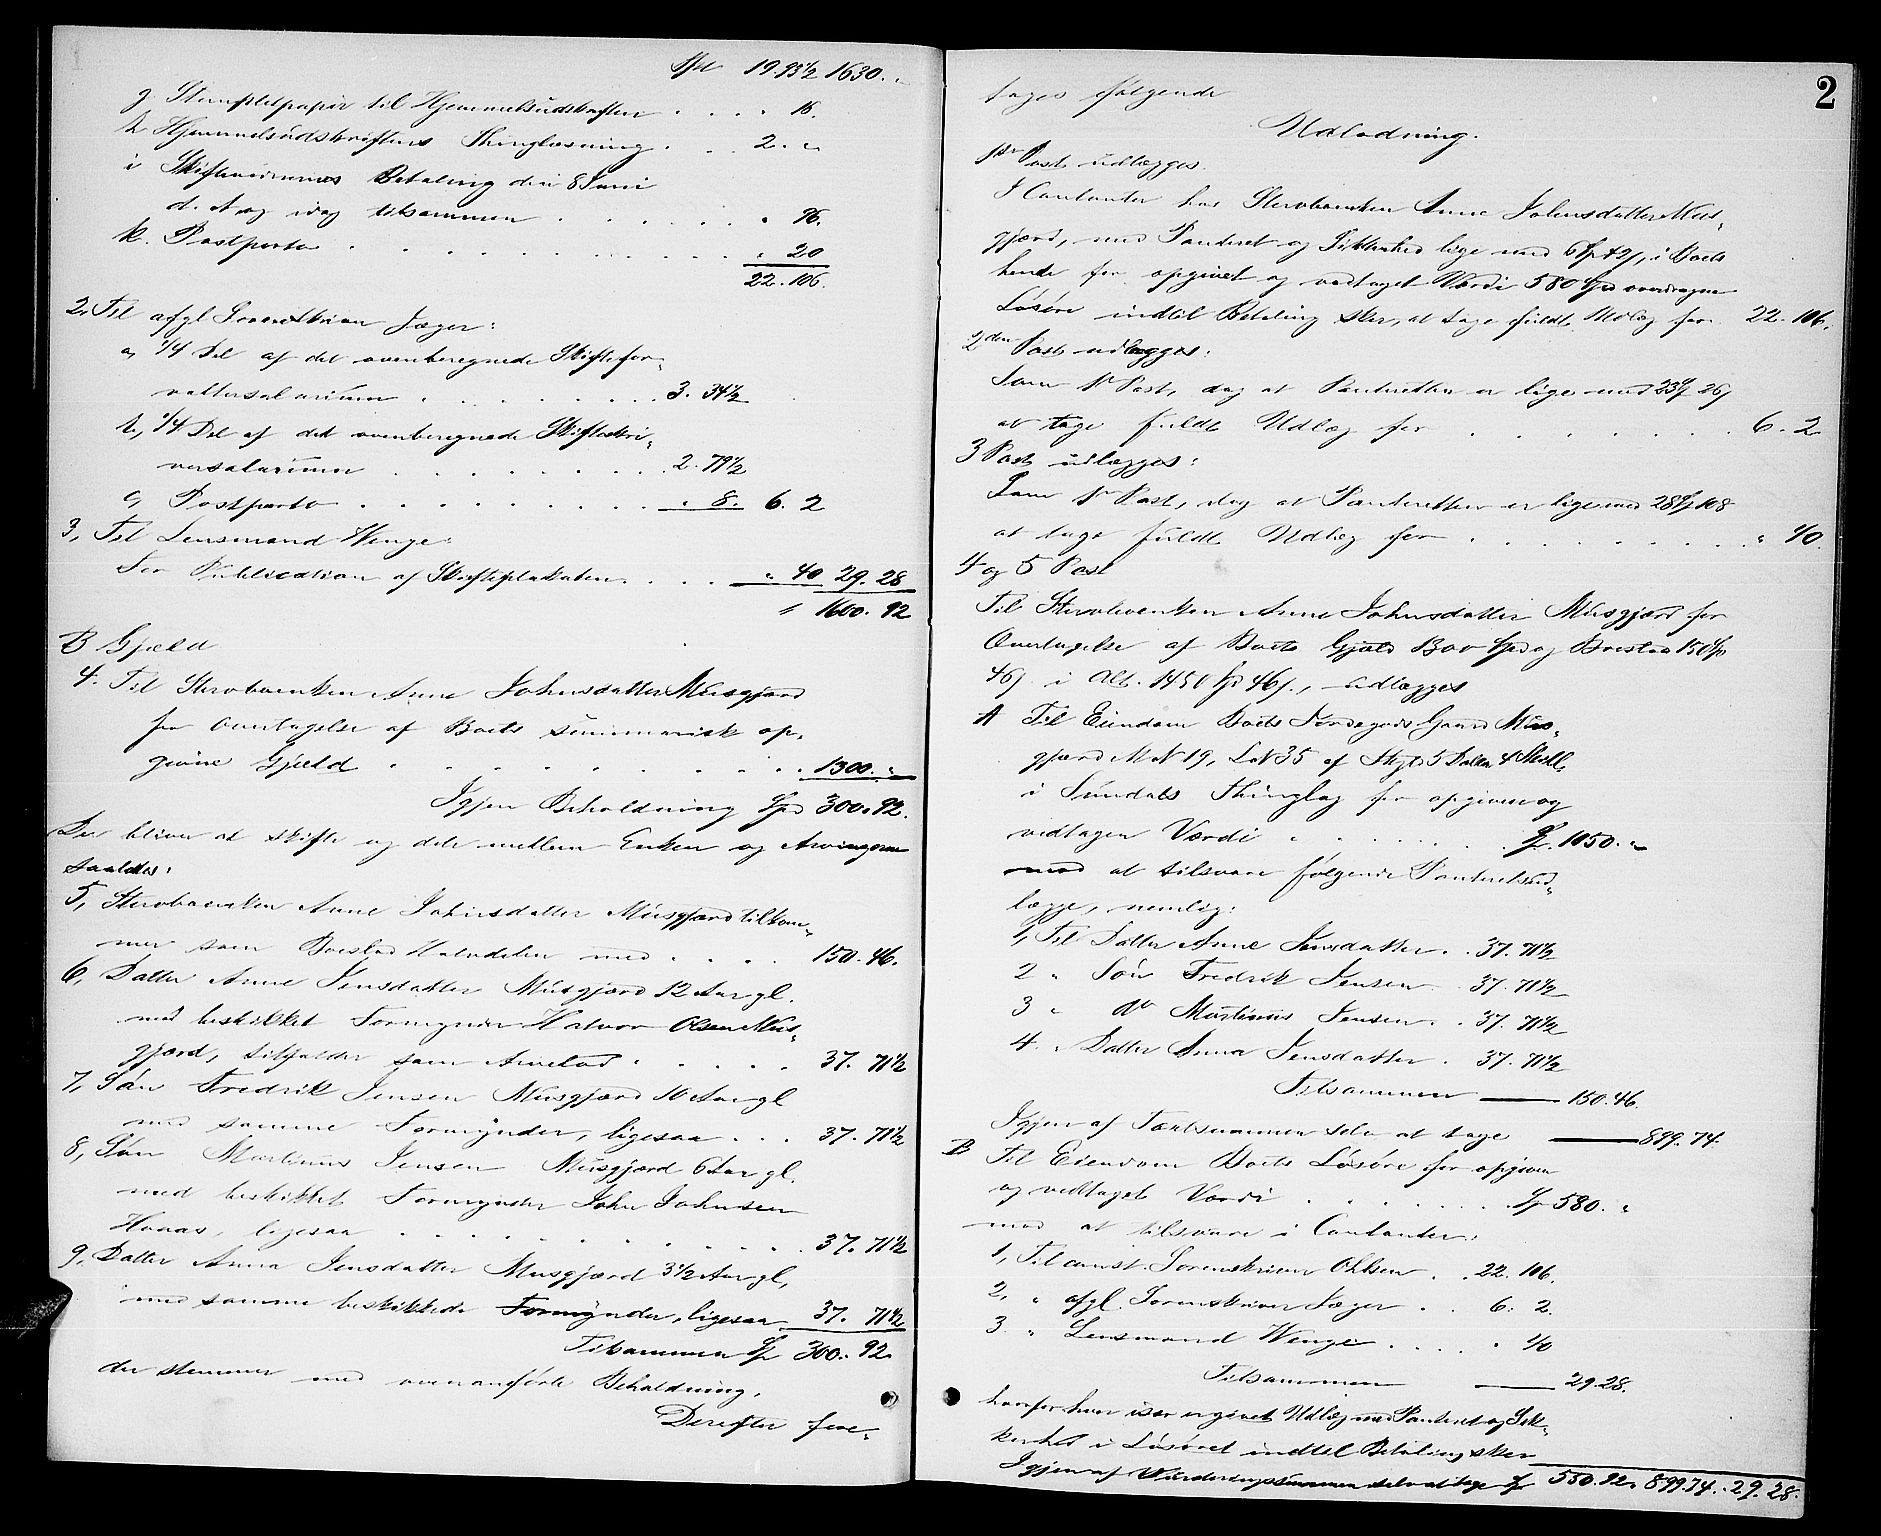 Spd 19. 93½ 1630. „
g, Stempletpapir til Hjemmelsudskriften . . . „ 16.
h, Hjemmelsudskriftens Thinglæsning . . . 2. „
i Skiftevidnernes Betaling den 8 Juni
d. A. og idag tilsammen . . . . „ 96.
k. Postporto . . . . . . . . „ 20
22. 106.
2, Til afgl. Sorenskriver Jæger:
a, ¼ Del af det ovenberegnede Skiftefor-
valtersalarium . . . . . . 3. 34½
b, ¼ Del af det ovenberegnede Skifteskri-
versalarium . . . . . . . 2. 79½
c, Postporto . . . . . . . „ 8. 6. 2
3, Til Lensmand Wenge:
For Publication af Skifteplakaten . . . „ 40 29. 28
1600. 92
B Gjæld
4. Til Stervboenken Anne Johnsdatter Musgjærd
for Overtagelse af Boets summarisk op-
givne Gjæld . . . . . . . . 1300. „
Igjen Beholdning Spd 300. 92.
Der bliver at skifte og dele mellem Enken og Arvingerne
saaledes:
5, Stervboenken Anne Johnsdatter Musgjærd tilkom-
mer som Boeslod Halvdelen med . . . . 150. 46.
6, Datter Anne Jensdatter Musgjærd 12 Aar gl.
med beskikket Formynder Halvor Olsen Mus-
gjærd, tilfalder som Arvelod . . . . . 37. 71½
7, Søn Fredrik Jensen Musgjærd 10 Aar gl
med samme Formynder, ligesaa . . . 37. 71½
8, Søn Martinus Jensen Musgjærd 6 Aar gl.
med beskikket Formynder John Johnsen
Hoaas, ligesaa . . . . . . . . 37. 71½
9, Datter Anna Jensdatter Musgjærd 3½ Aar gl,
med samme beskikkede Formynder, ligesaa 37. 71½
Tilsammen Sp 300. 92.
der stemmer med ovenanførte Beholdning.
Derefter fore-
2
tages følgende
Udlodning.
1ste Post udlægges.
I Contanter hos Stervboenken Anne Johnsdatter Mus-
gjærd, med Panteret og Sikkerhed lige med
hende for opgivet og vedtaget Værdi 580 Spd overdragne
Løsøre indtil Betaling sker, at tage fuldt Udlæg for 22. 106.
2den Post udlægges:
Som 1ste Post, dog at Panteretten er lige med
at tage fuldt Udlæg for . . . . . . 6. 2
3 Post udlægges:
Som 1ste Post, dog at Panteretten er lige med
at tage fuldt Udlæg for . . . . . . „ 40.
4 og 5 Post
Til Stervboenken Anne Johnsdatter Musgjærd for
Overtagelse af Boets Gjæld 1300 Spd og Boeslod 150 Sp
46 s. i Alt. 1450 Sp 46 s., udlægges
A Til Eiendom Boets Jordegods Gaard Mus-
gjærd M N 19, L N 35 af Skyld 5 Daler 4 Skill.
i Sundals Thinglag for opgiven og
vedtagen Værdi . . . . . . Sp. 1050. „
mod at tilsvare følgende Panteretsud-
lægge, nemlig:
1, Til Datter Anne Jensdatter . . 37. 71½
2 „ Søn Fredrik Jensen . . 37. 71½
3 „ do Martinus Jensen . . 37. 71½
4. „ Datter Anna Jensdatter . 37. 71½
Tilsammen 150. 46.
Igjen af Taxtsummen selv at tage 899. 74.
B Til Eiendom Boets Løsøre for opgiven
og vedtaget Værdi . . . . . . Sp 580. „
mod at tilsvare i Contanter:
1, Til const. Sorenskriver Ohlsen . . 22. 106.
2, „ afgl. Sorenskriver Jæger . . 6. 2.
3. „ Lensmand Wenge . . . . „ 40
Tilsammen 29. 28.
hvorfor hver især er givet Udlæg med Panteret og Sik-
kerhed i Løsøret indtil Betaling sker
Igjen af Vurderingssummen selv at tage Sp 550. 92. 899. 74. 29. 28.